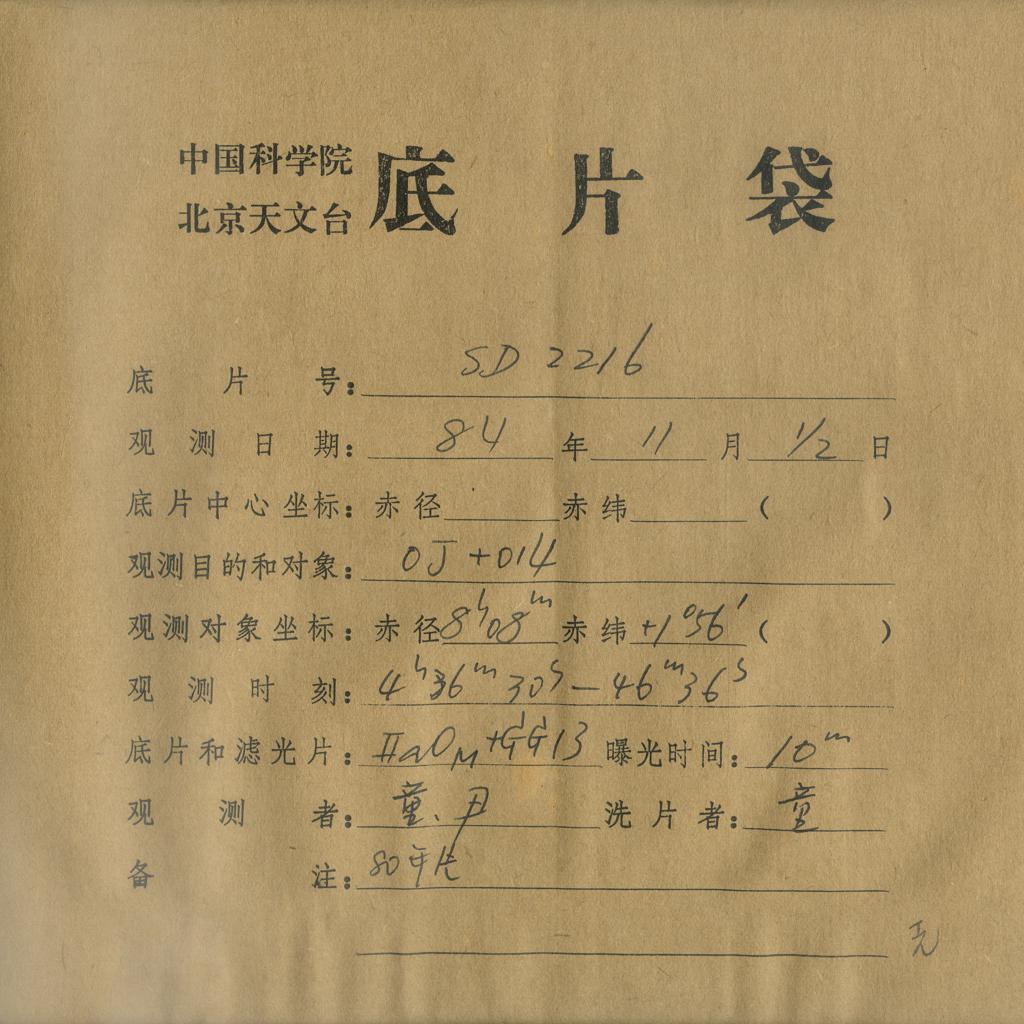 中国科学院
北京天文台
底片袋
底片号: SD 2216
观测日期: 84 年 11 月 1/2 日
底片中心坐标: 赤径 赤纬 ( )
观测目的和对象: OJ+014
观测对象坐标: 赤径 8h08m 赤纬 +1°56′ ( )
观测时刻: 4h36m30s—46m36s
底片和滤光片: IIaOM+GG13 曝光时间: 10m
观测者: 童、尹 洗片者: 童
备注: 80年片